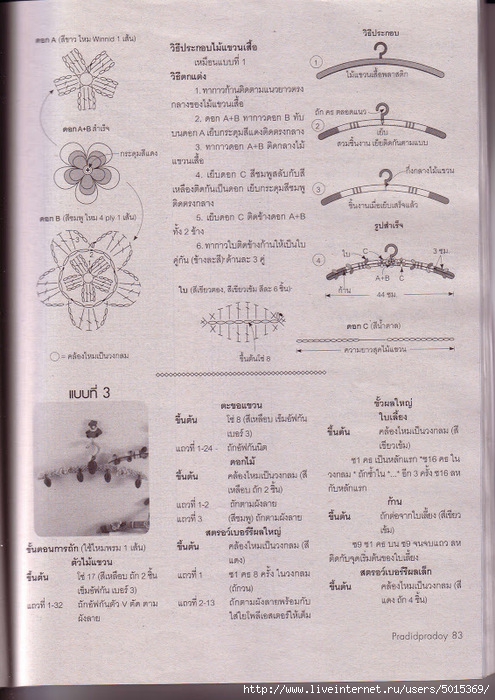 ดอก A (สีขาว ไหม Winnid 1 เส้น)
ดอก A+B สำเร็จ
กระดุมสีแดง
ดอก B (สีชมพู ไหม 4 ply 1 เส้น)
= คล้องไหมเป็นวงกลม
วิธีประกอบไม้แขวนเสื้อ
เหมือนแบบที่ 1
วิธีตกแต่ง
1. ทากาวก้านติดตามแนวยาวตรง
กลางของไม้แขวนเสื้อ
2. ดอก A+B ทากาวดอก B ทับ
บนดอก A เย็บกระดุมสีแดงติดตรงกลาง
3. ทากาวดอก A+B ติดกลางไม้
แขวนเสื้อ
4. เย็บดอก C สีชมพูสลับกับสี
เหลืองติดกันเป็นดอก เย็บกระดุมสีชมพู
ติดตรงกลาง
5. เย็บดอก C ติดข้างดอก A+B
ทั้ง 2 ข้าง
6. ทากาวใบติดข้างก้านให้เป็นใบ
คู่กัน (ข้างละสี) ด้านละ 3 คู่
ใบ (สีเขียวตอง, สีเขียวเข้ม สีละ 6 ชิ้น)
ขึ้นต้นโซ่ 8
วิธีประกอบ
1
ไม้แขวนเสื้อพลาสติก
ถัก คร ตลอดแนว
2
เย็บ
สวมชิ้นงาน เย็บติดกันตามแบบ
กึ่งกลางไม้แขวน
3
ชิ้นงานเมื่อเย็บเสร็จแล้ว
รูปสำเร็จ
4
ใบ
C
3 ซม.
A+B
C
ก้าน
44 ซม.
ดอก C (สีน้ำตาล)
ความยาวสุดไม้แขวน
แบบที่ 3
ขั้นตอนการถัก (ใช้ไหมพรม 1 เส้น)
ตัวไม้แขวน
ขึ้นต้น โซ่ 17 (สีเหลือบ ถัก 2 ชิ้น
เข็มอัฟกัน เบอร์ 3)
แถวที่ 1-32 ถักอัฟกันตัว V ตัด ตาม
ผังลาย
ตะขอแขวน
ขึ้นต้น โซ่ 8 (สีเหลือบ เข็มอัฟกัน
เบอร์ 3)
แถวที่ 1-24 - ถักอัฟกันนิต
ดอกไม้
ขึ้นต้น คล้องไหมเป็นวงกลม (สี
เหลือบ ถัก 2 ชิ้น)
แถวที่ 1-2 ถักตามผังลาย
แถวที่ 3 (สีชมพู) ถักตามผังลาย
สตรอว์เบอร์รีผลใหญ่
ขึ้นต้น คล้องไหมเป็นวงกลม (สี
แดง)
แถวที่ 1 ซ1 คธ 8 ครั้ง ในวงกลม
(ถักวน)
แถวที่ 2-13 ถักตามผังลายพร้อมกับ
ใส่ใยโพลีเอสเตอร์ให้เต็ม
ขั้วผลใหญ่
ใบเลี้ยง
ขึ้นต้น คล้องไหมเป็นวงกลม (สี
เขียวเข้ม)
ซ1 คธ เป็นหลักแรก *ซ16 คธ ใน
วงกลม * ถักซ้ำใน *...* อีก 3 ครั้ง ซ16 ลห
กับหลักแรก
ก้าน
ขึ้นต้น ถักต่อจากใบเลี้ยง (สีเขียว
เข้ม)
ซ9 ซ1 คธ บน ซ9 จนจบแถว ลห
ติดกับจุดเริ่มต้นของใบเลี้ยง
สตรอว์เบอร์รีผลเล็ก
ขึ้นต้น คล้องไหมเป็นวงกลม (สี
แดง ถัก 4 ชิ้น)
Pradidpradoy 83
http://www.liveinternet.ru/users/5015369/